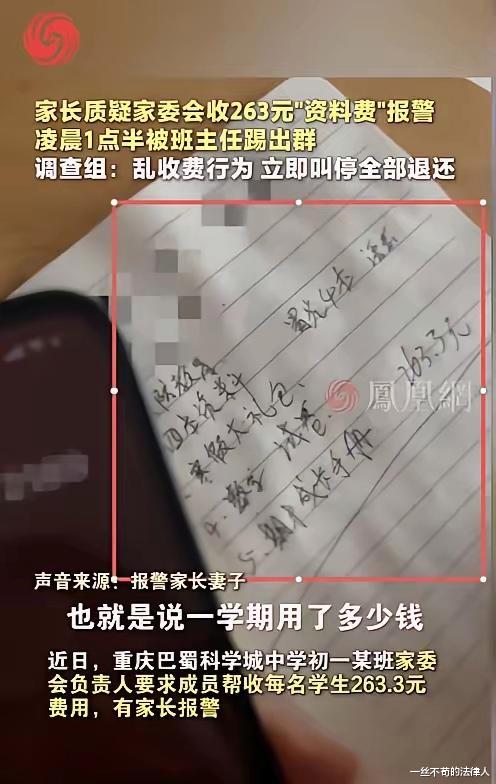 家长质疑家委会收263元"资料费"报警
凌晨1点半被班主任踢出群
调查组：乱收费行为 立即叫停全部退还
四点资料
寒假大礼包、
4、数学 试卷、
263.3元
鳳凰網
声音来源：报警家长妻子
也就是说一学期用了多少钱
近日，重庆巴蜀科学城中学初一某班家委
会负责人要求成员帮收每名学生263.3元
费用，有家长报警
一丝不苟的法律人